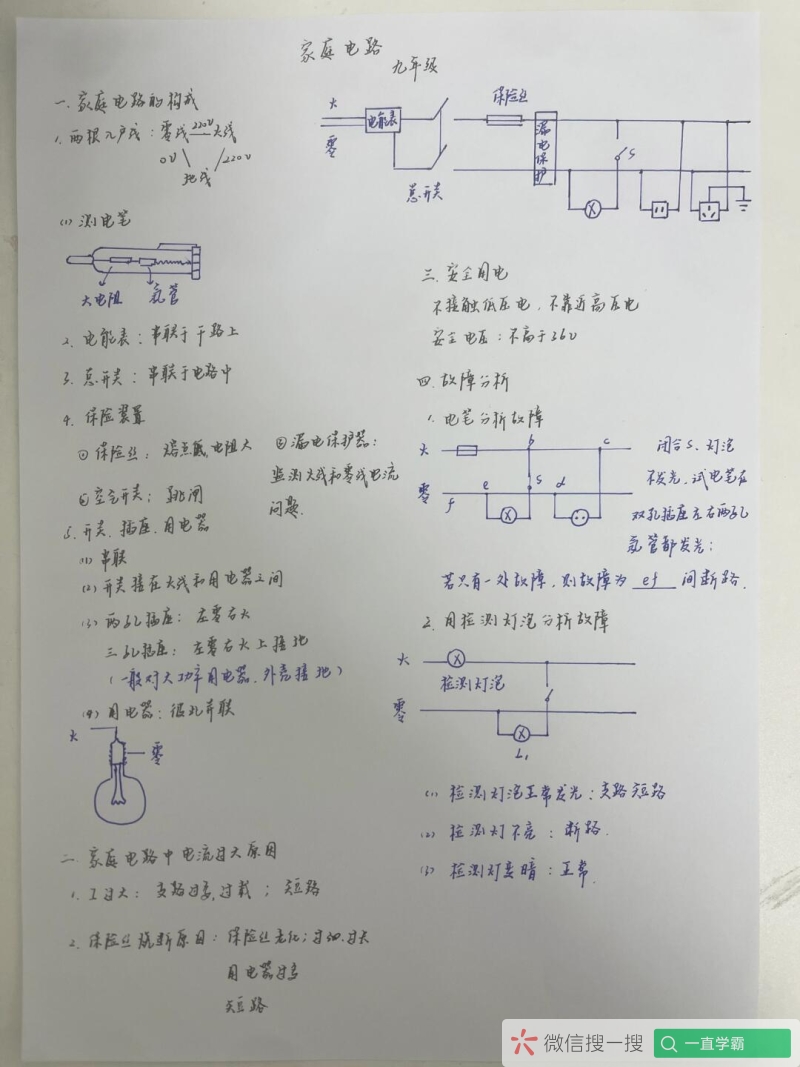 家庭电路
九年级
一. 家庭电路的构成
1. 两根入户线：零线 220V 火线
0V 220V
地线
(1) 测电笔
大电阻 氖管
2. 电能表：串联于干路上
3. 总开关：串联于电路中
4. 保险装置
① 保险丝：熔点低,电阻大
② 空气开关：跳闸
③ 漏电保护器：
监测火线和零线电流
问题.
5. 开关. 插座. 用电器
(1) 串联
(2) 开关接在火线和用电器之间
(3) 两孔插座：左零右火
三孔插座：左零右火上接地
(一般对大功率用电器. 外壳接地)
(4) 用电器：很北并联
火
零
二. 家庭电路中电流过大原因
1. I过大：支路过多,过载；短路
2. 保险丝烧断原因：保险丝老化；过细.过大
用电器过多
短路
火
零
电能表
总开关
保险丝
漏电保护
S
三. 安全用电
不接触低压电, 不靠近高压电
安全电压：不高于36V
四. 故障分析
1. 电笔分析故障
火 b c
零 f e S d
闭合S. 灯泡
不发光, 试电笔在
双孔插座左右两孔
氖管都发光；
若只有一处故障, 则故障为 ef 间断路.
2. 用检测灯泡分析故障
火
检测灯泡
零
L₁
(1) 检测灯泡正常发光：支路短路
(2) 检测灯不亮：断路.
(3) 检测灯变暗：正常.
微信搜一搜
一直学霸